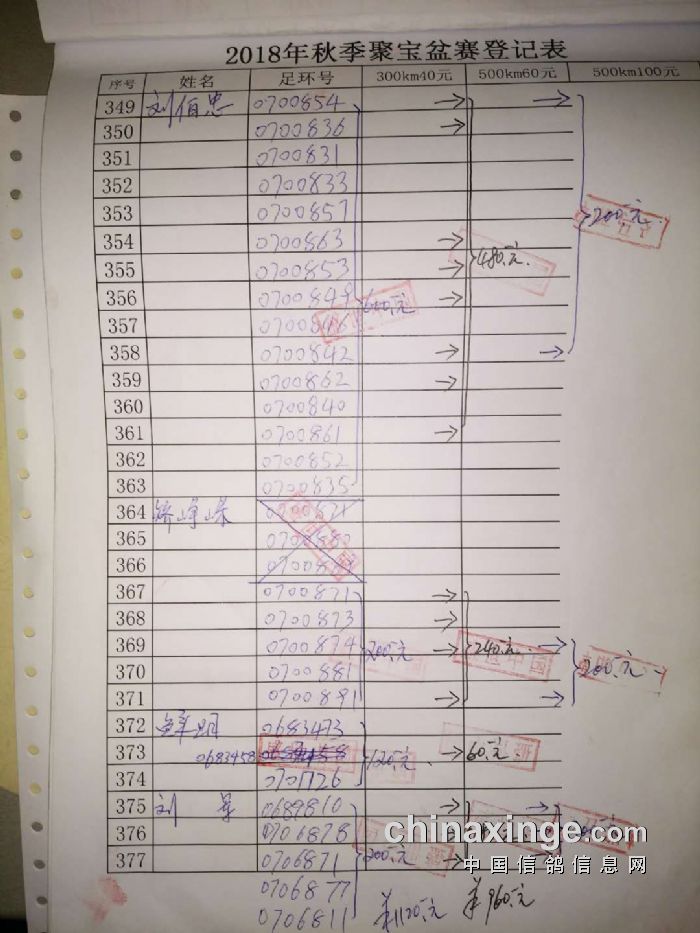 2018年秋季聚宝盆赛登记表
序号 姓名 足环号 300km40元 500km60元 500km100元
349 刘伯忠 0700854
350 0700836
351 0700831
352 0700833
353 0700857
354 0700863
355 0700853 480.元
356 0700849 600.元
357 0700846
358 0700842
359 0700862
360 0700840
361 0700861
362 0700852
363 0700835
364
365
366
367 0700871
368 0700873
369 0700874 200.元 240.元
370 0700881 200.元
371 0700891
372 鲜明 0683473
373 0683458 120.元 60.元
374 0701726
375 刘 0689810
376 0706878
377 0706871 200.元
0706877
0706811 1120.元 960.元
chinaxinge.com
中国信鸽信息网